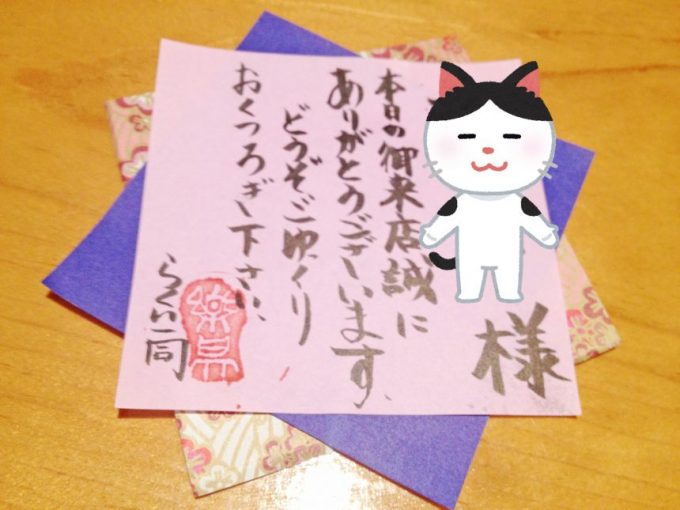 様
本日の御来店誠に
ありがとうございます、
どうぞごゆっくり
おくつろぎ下さい、
らくい一同